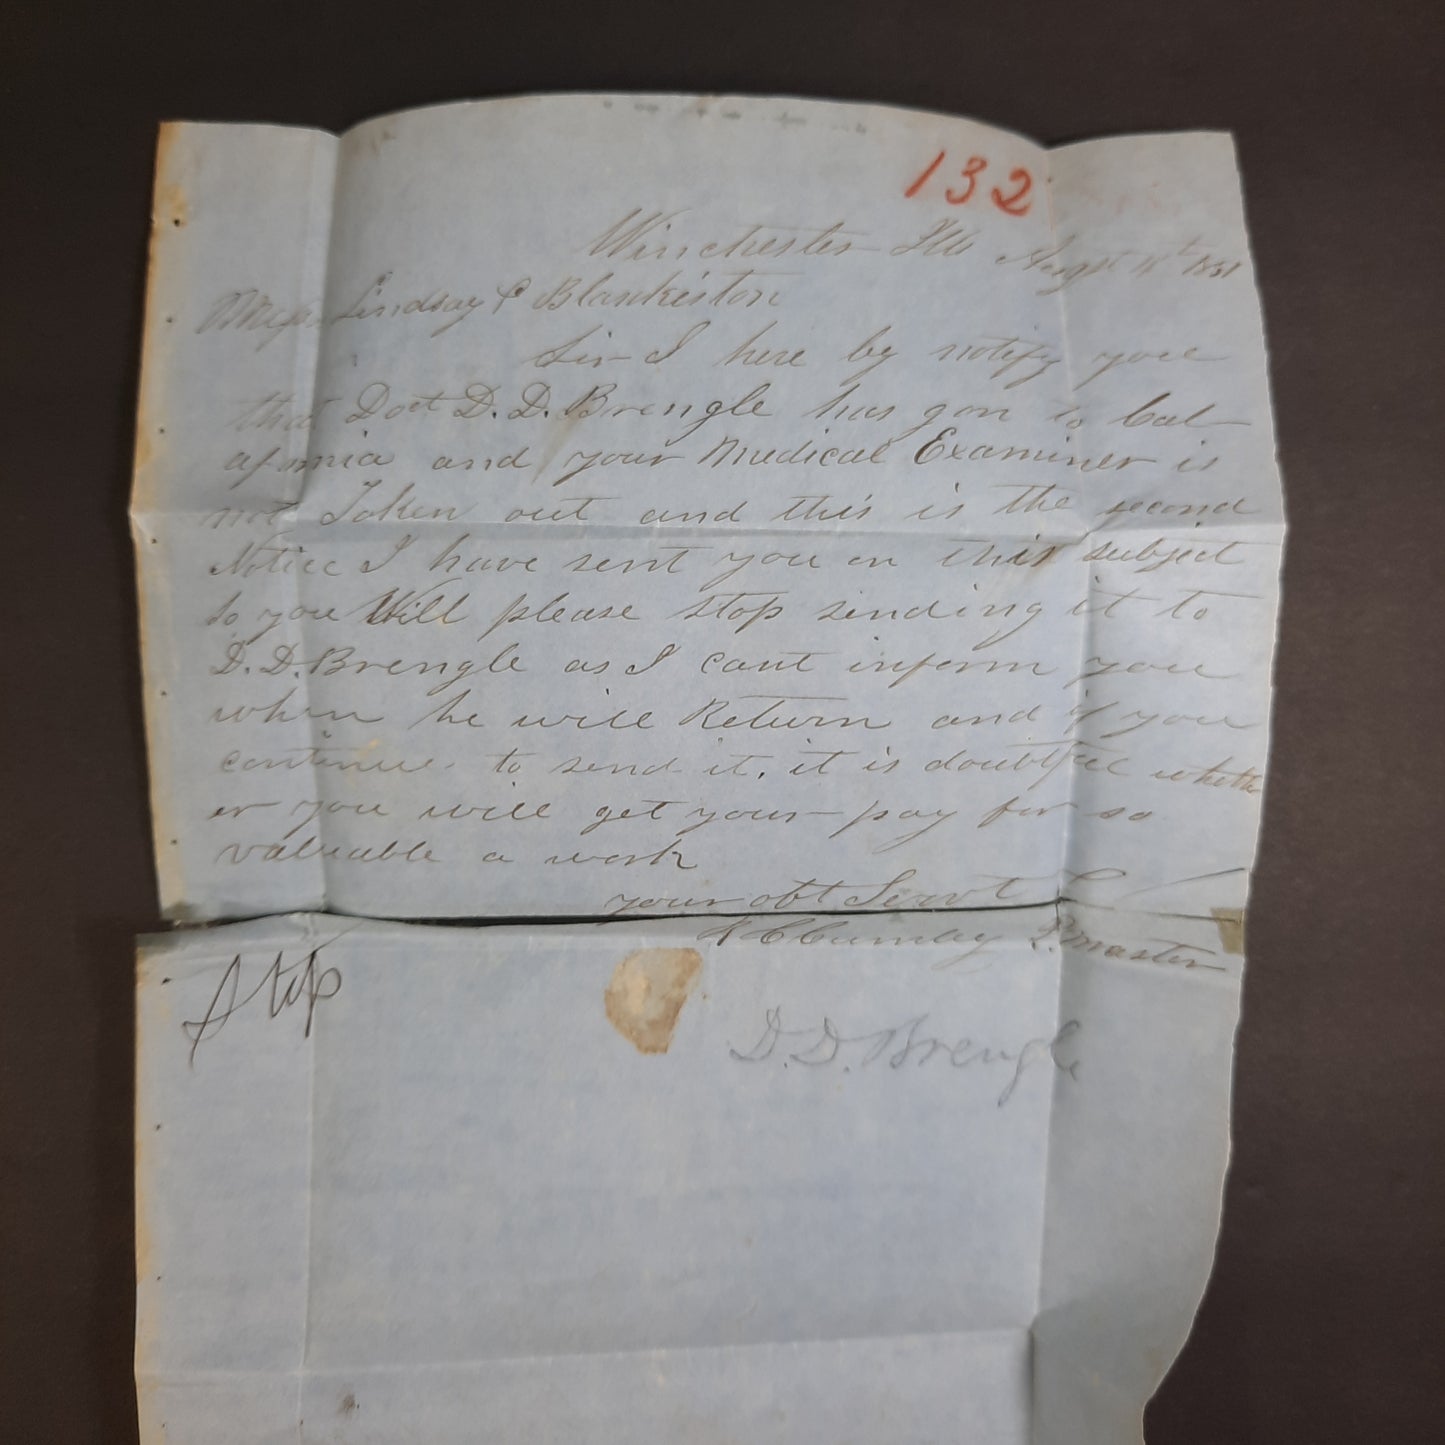 132
Winchester Ills Augst 18th 1851
Mess Lindsay & Blackiston
Sir I here by notify you
that Doct D. D. Brengle has gon to Cal
afornia and your Medical Examiner is
not Taken out and this is the second
Notice I have sent you on this subject
so you Will please stop sending it to
D. D. Brengle as I cant inform you
when he will Return and if you
continue to send it, it is doubtful wheth
er you will get your pay for so
valuable a work
your obt Servt
P. master
Stop
D. D. Brengle